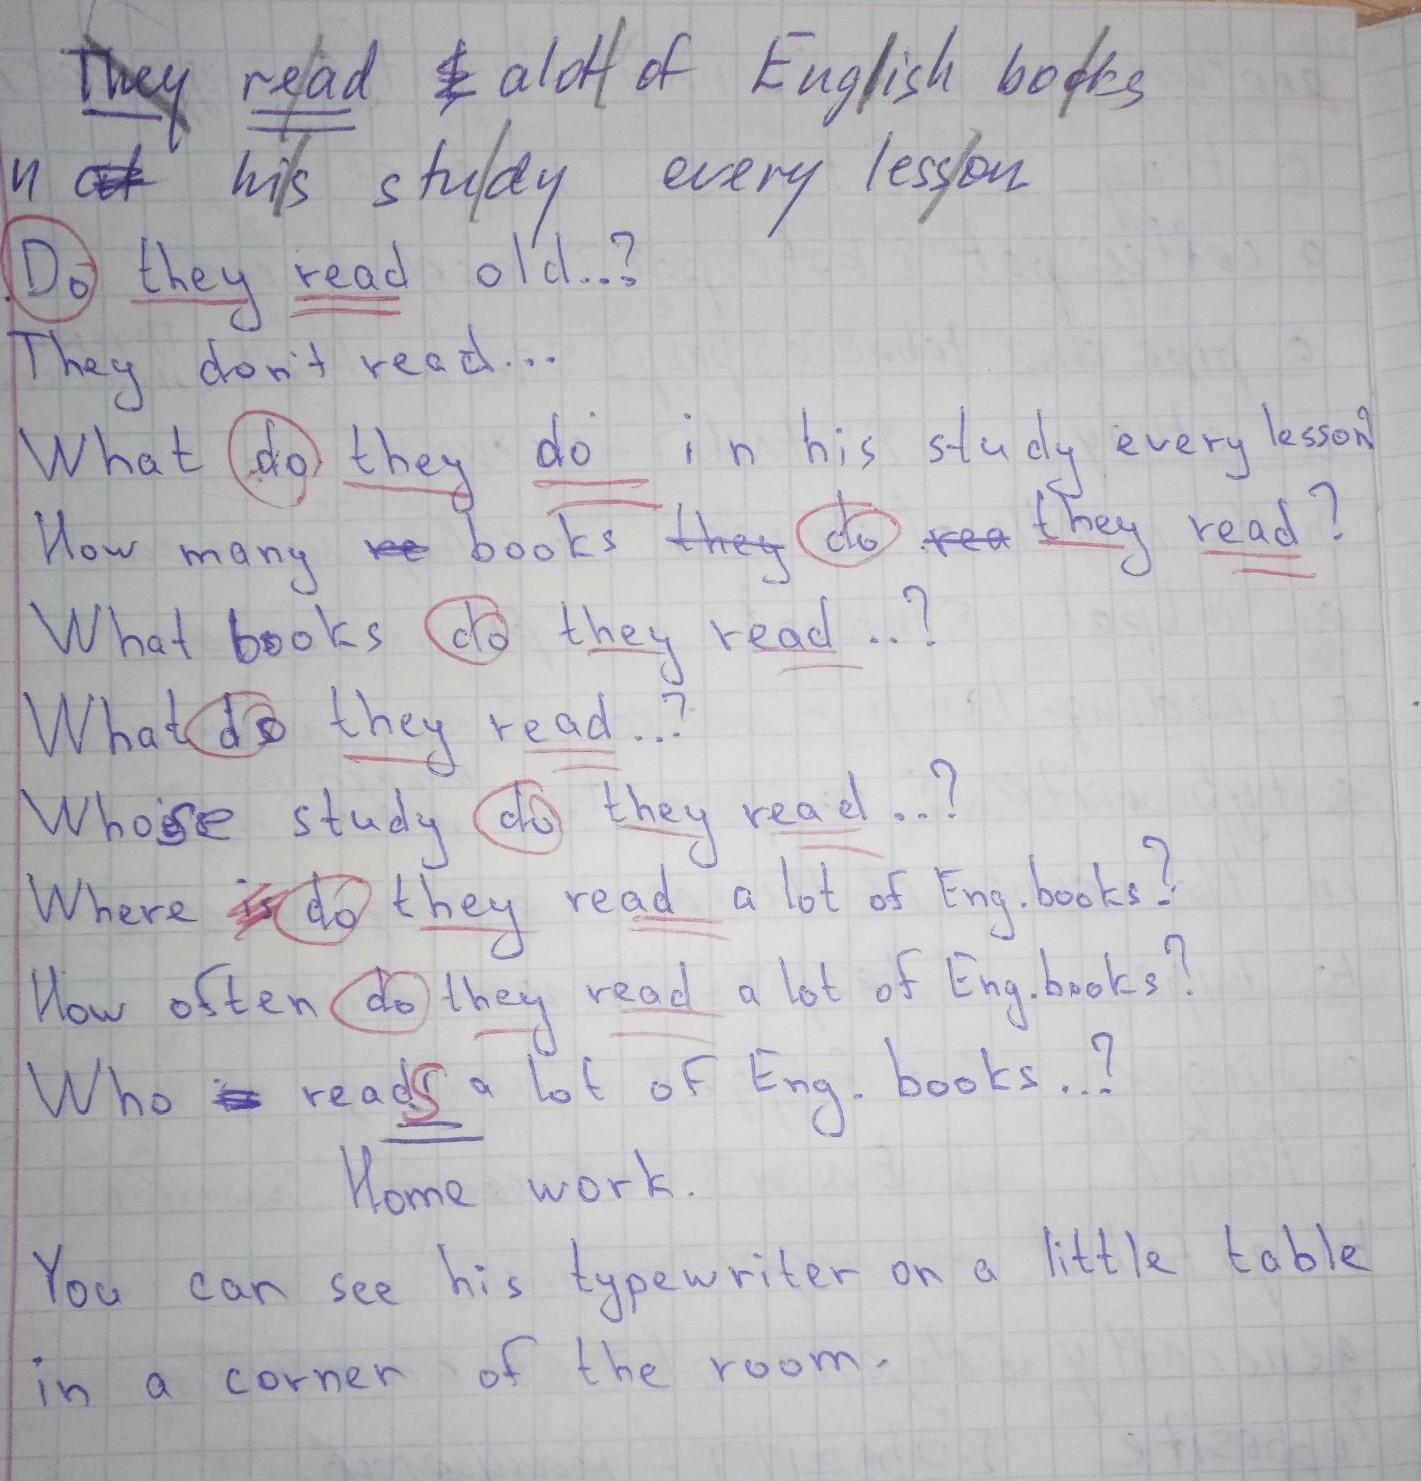 They read a lot of English books
in his study every lesson
Do they read old..?
They don't read...
What do they do in his study every lesson?
How many books they do rea they read?
What books do they read ..?
What do they read...?
Whose study do they read...?
Where is do they read a lot of Eng. books?
How often do they read a lot of Eng. books?
Who is reads a lot of Eng. books...?
Home work.
You can see his typewriter on a little table
in a corner of the room.